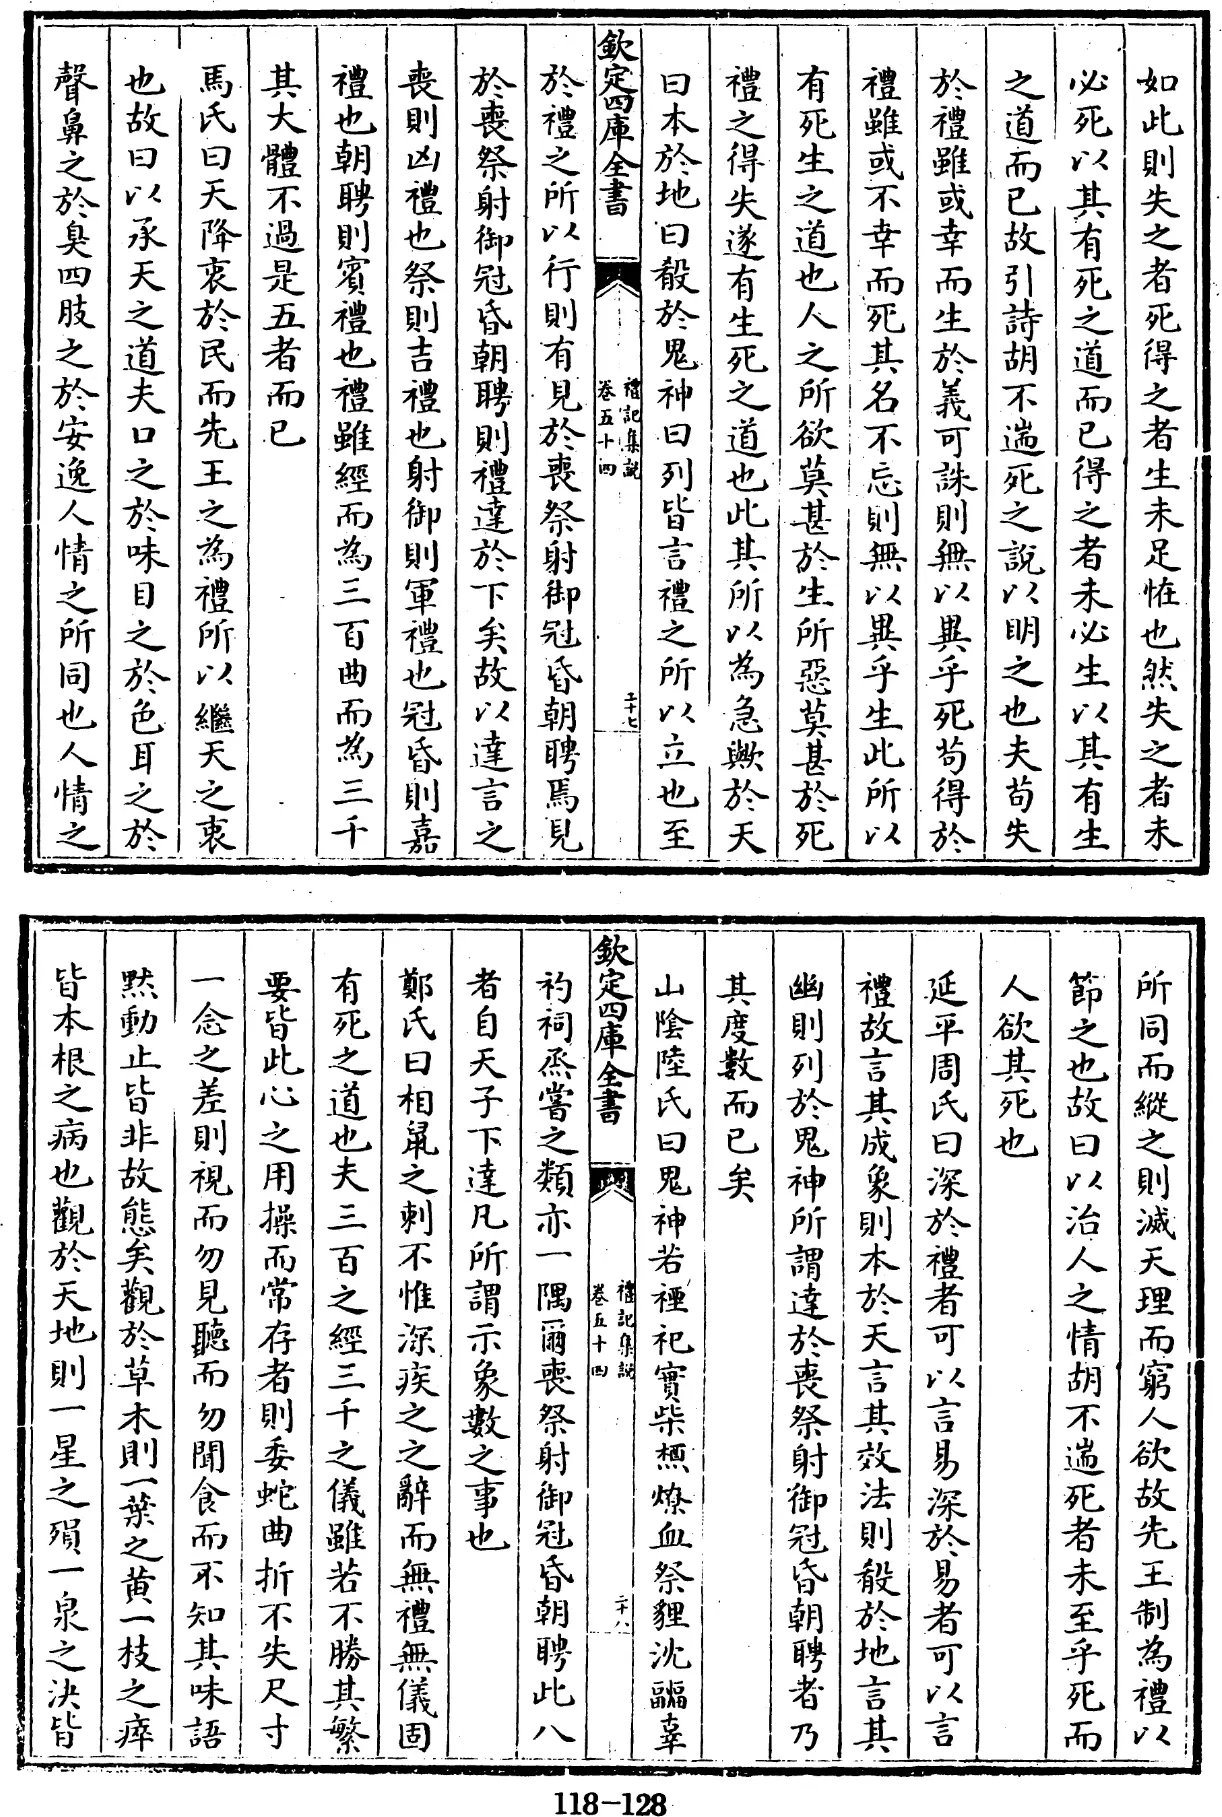 如此則失之者死得之者生未足恠也然失之者未
必死以其有死之道而已得之者未必生以其有生
之道而已故引詩胡不遄死之說以明之也夫苟失
於禮雖或幸而生於義可誅則無以異乎死苟得於
禮雖或不幸而死其名不忘則無以異乎生此所以
有死生之道也人之所欲莫甚於生所惡莫甚於死
禮之得失遂有生死之道也此其所以為急歟於天
曰本於地曰殽於鬼神曰列皆言禮之所以立也至
欽定四庫全書
禮記集說
卷五十四
二十七
於禮之所以行則有見於喪祭射御冠昏朝聘焉見
於喪祭射御冠昏朝聘則禮達於下矣故以達言之
喪則凶禮也祭則吉禮也射御則軍禮也冠昏則嘉
禮也朝聘則賓禮也禮雖經而為三百曲而為三千
其大體不過是五者而已
馬氏曰天降衷於民而先王之為禮所以繼天之衷
也故曰以承天之道夫口之於味目之於色耳之於
聲鼻之於臭四肢之於安逸人情之所同也人情之
所同而縱之則滅天理而窮人欲故先王制為禮以
節之也故曰以治人之情胡不遄死者未至乎死而
人欲其死也
延平周氏曰深於禮者可以言易深於易者可以言
禮故言其成象則本於天言其效法則殽於地言其
幽則列於鬼神所謂達於喪祭射御冠昏朝聘者乃
其度數而已矣
山陰陸氏曰鬼神若禋祀實柴槱燎血祭貍沈疈辜
欽定四庫全書
禮記集說
卷五十四
二十八
礿祠烝嘗之類亦一隅爾喪祭射御冠昏朝聘此八
者自天子下達凡所謂示象數之事也
鄭氏曰相鼠之刺不惟深疾之之辭而無禮無儀固
有死之道也夫三百之經三千之儀雖若不勝其繁
要皆此心之用操而常存者則委蛇曲折不失尺寸
一念之差則視而勿見聽而勿聞食而不知其味語
黙動止皆非故態矣觀於草木則一葉之黄一枝之瘁
皆本根之病也觀於天地則一星之殞一泉之決皆
118-128